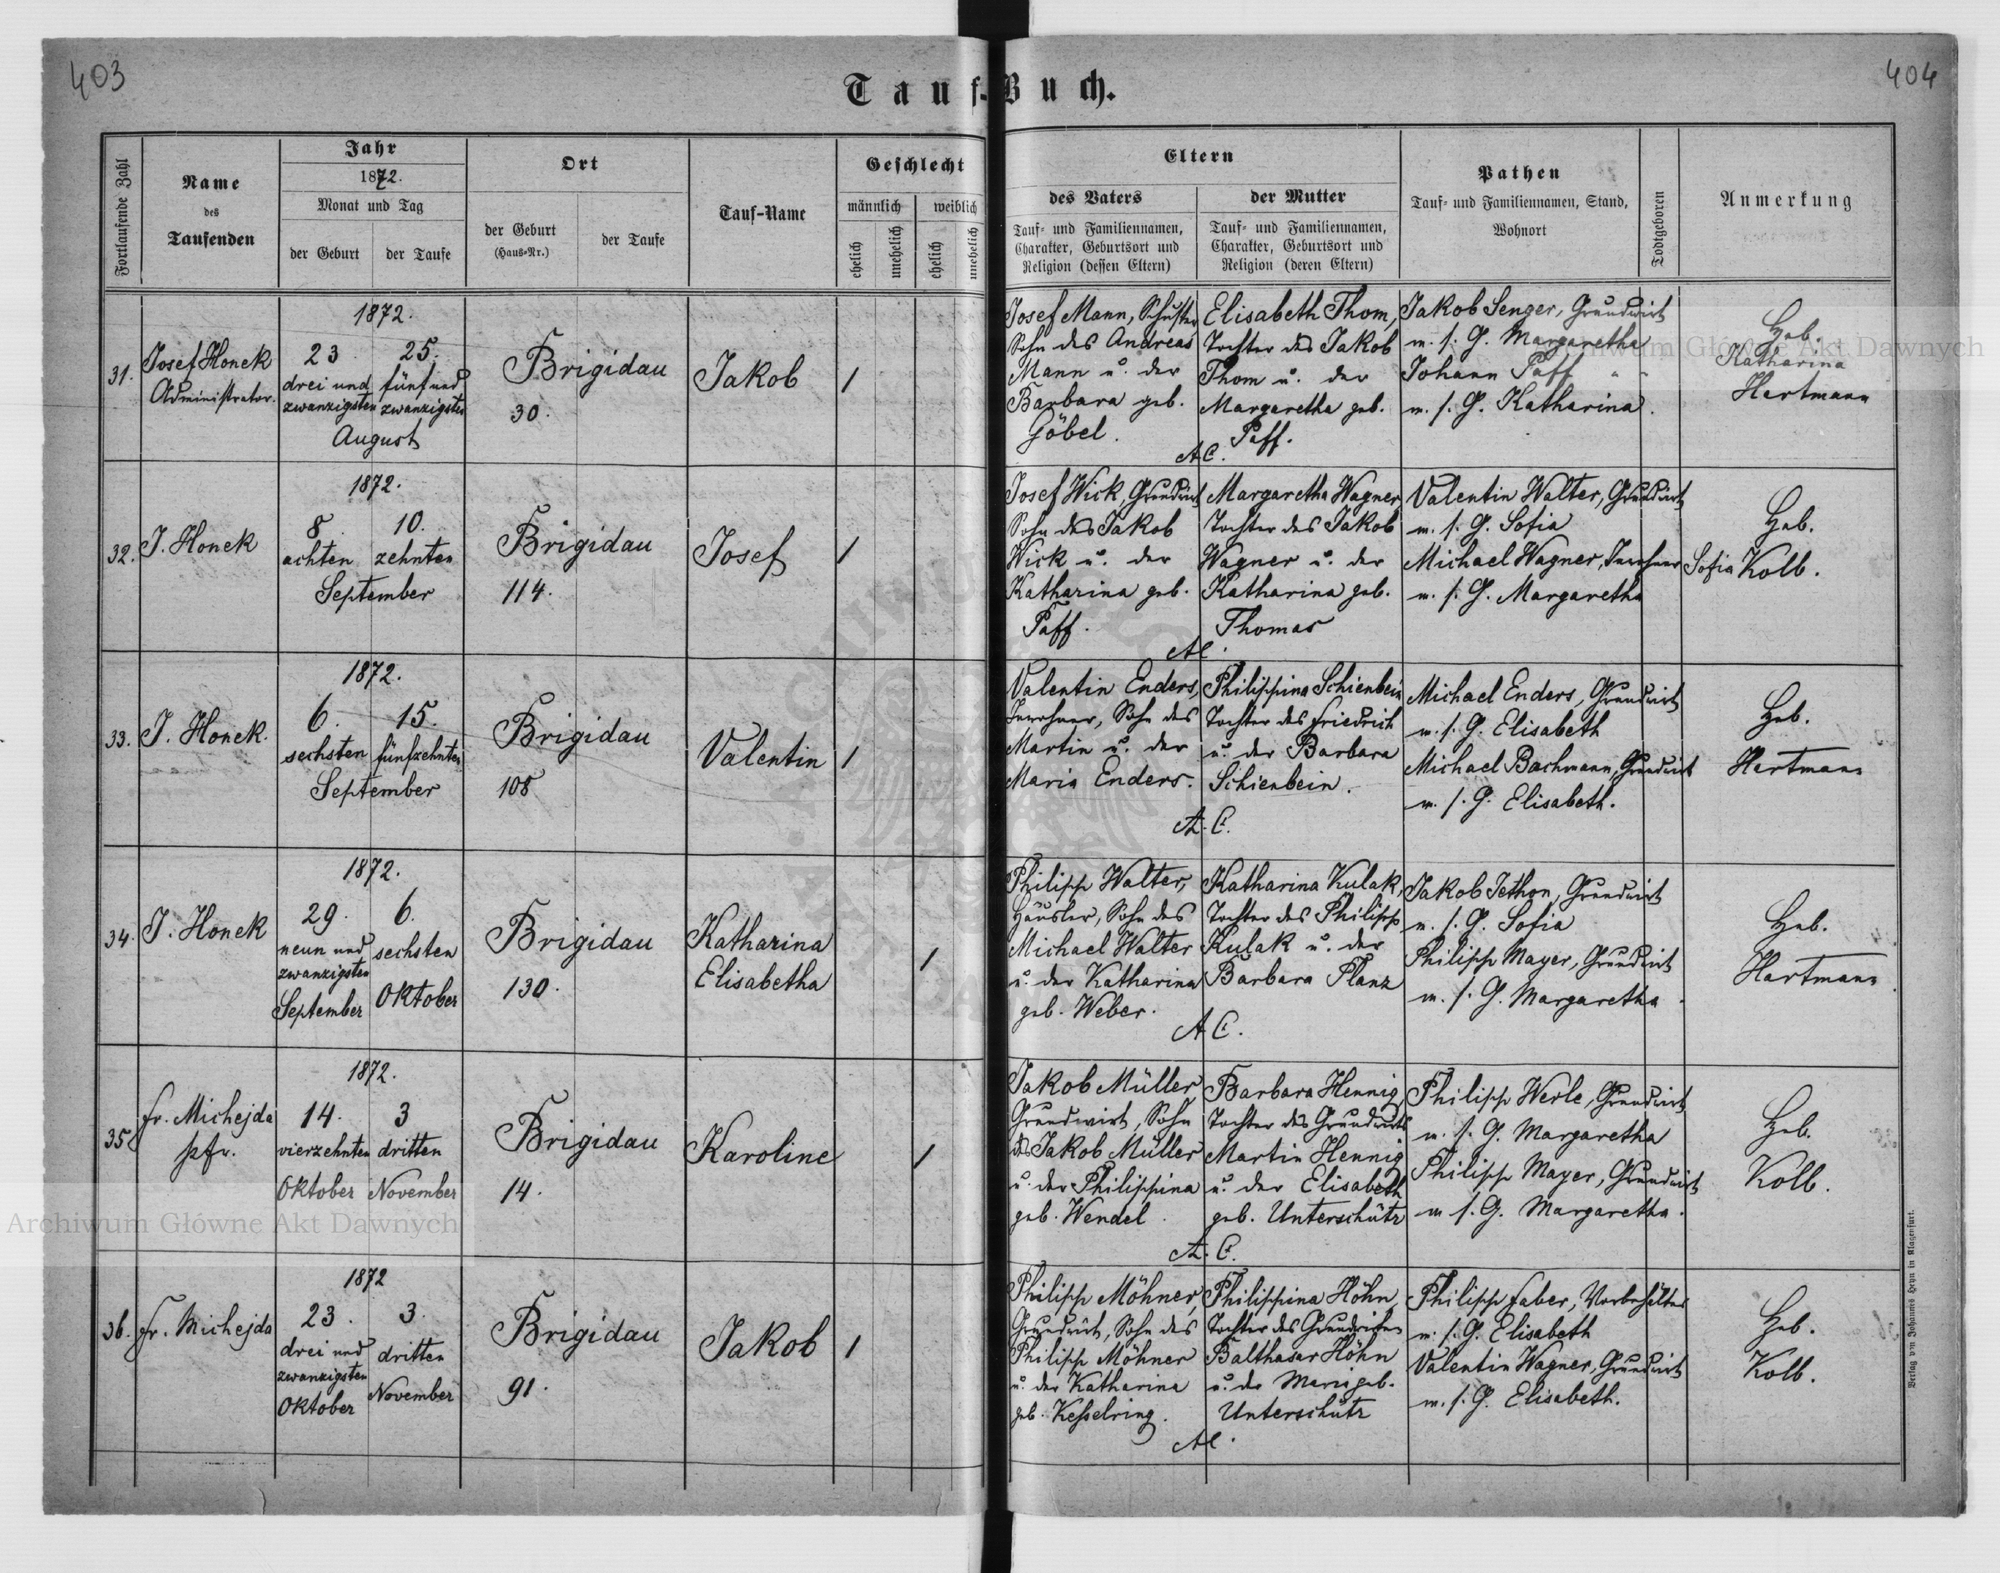 403
404
Tauf-Buch.
Fortlaufende Zahl
Name
des
Taufenden
Jahr
1872.
Monat und Tag
der Geburt
der Taufe
Ort
der Geburt
(Haus-Nr.)
der Taufe
Tauf-Name
Geschlecht
männlich
weiblich
ehelich
unehelich
ehelich
unehelich
Eltern
des Vaters
Tauf- und Familiennamen,
Charakter, Geburtsort und
Religion (dessen Eltern)
der Mutter
Tauf- und Familiennamen,
Charakter, Geburtsort und
Religion (deren Eltern)
Pathen
Tauf- und Familiennamen, Stand,
Wohnort
Todtgeboren
Anmerkung
31.
Josef Honek
Administrator.
1872.
23
drei und
zwanzigsten
25.
fünf und
zwanzigsten
August
Brigidau
30.
Jakob
1
Josef Mann, Schuster
Sohn des Andreas
Mann u. der
Barbara geb.
Göbel.
Elisabeth Thom,
Tochter des Jakob
Thom u. der
Margaretha geb.
Paff.
A.C.
Jakob Senger, Grundwirt
m. s. G. Margaretha
Johann Paff " "
m. s. G. Katharina.
Heb.
Katharina
Hartmann
32.
J. Honek
1872.
8.
achten
10.
zehnten
September
Brigidau
114.
Josef
1
Josef Wick, Grundwirt
Sohn des Jakob
Wick u. der
Katharina geb.
Paff.
Margaretha Wagner
Tochter des Jakob
Wagner u. der
Katharina geb.
Thomas
AC.
Valentin Walter, Grundwirt
m. s. G. Sofia
Michael Wagner, Inwohner
m. s. G. Margaretha
Heb.
Sofia Kolb.
33.
J. Honek.
1872.
6.
sechsten
15.
fünfzehnten
September
Brigidau
108
Valentin
1
Valentin Enders,
Inwohner, Sohn des
Martin u. der
Maria Enders.
Philippina Schienbein
Tochter des Friedrich
u. der Barbara
Schienbein.
A. C.
Michael Enders, Grundwirt
m. s. G. Elisabeth
Michael Bachmann, Grundwirt
m. s. G. Elisabeth.
Heb.
Hartmann
34.
J. Honek
1872.
29.
neun und
zwanzigsten
September
6.
sechsten
Oktober
Brigidau
130.
Katharina
Elisabetha
1
Philipp Walter,
Häusler, Sohn des
Michael Walter
u. der Katharina
geb. Weber.
Katharina Kulak,
Tochter des Philipp
Kulak u. der
Barbara Planz
A C.
Jakob Jethon, Grundwirt
m. s. G. Sofia
Philipp Mayer, Grundwirt
m. s. G. Margaretha.
Heb.
Hartmann
35.
Fr. Michejda
pfr.
1872.
14.
vierzehnten
Oktober
3
dritten
November
Brigidau
14.
Karoline
1
Jakob Müller
Grundwirt, Sohn
des Jakob Müller
u. der Philippina
geb. Wendel.
Barbara Hennig,
Tochter des Grundwirts
Martin Hennig
u. der Elisabeth
geb. Unterschütz
A. C.
Philipp Werle, Grundwirt
m. s. G. Margaretha
Philipp Mayer, Grundwirt
m s. G. Margaretha.
Heb.
Kolb.
36.
Fr. Michejda
1872
23.
drei und
zwanzigsten
Oktober
3.
dritten
November
Brigidau
91.
Jakob
1
Philipp Möhner,
Grundwirt, Sohn des
Philipp Möhner
u. der Katharina
geb. Kesselring.
Philippina Höhn,
Tochter des
Balthasar Höhn
u. der Maria geb.
Unterschütz
AC.
Philipp Faber, Vorbehälter
m. s. G. Elisabeth
Valentin Wagner, Grundwirt
m. s. G. Elisabeth.
Heb.
Kolb.
Verlag von Johannes Heyn in Klagenfurt.
Archiwum Główne Akt Dawnych
Archiwum Główne Akt Dawnych